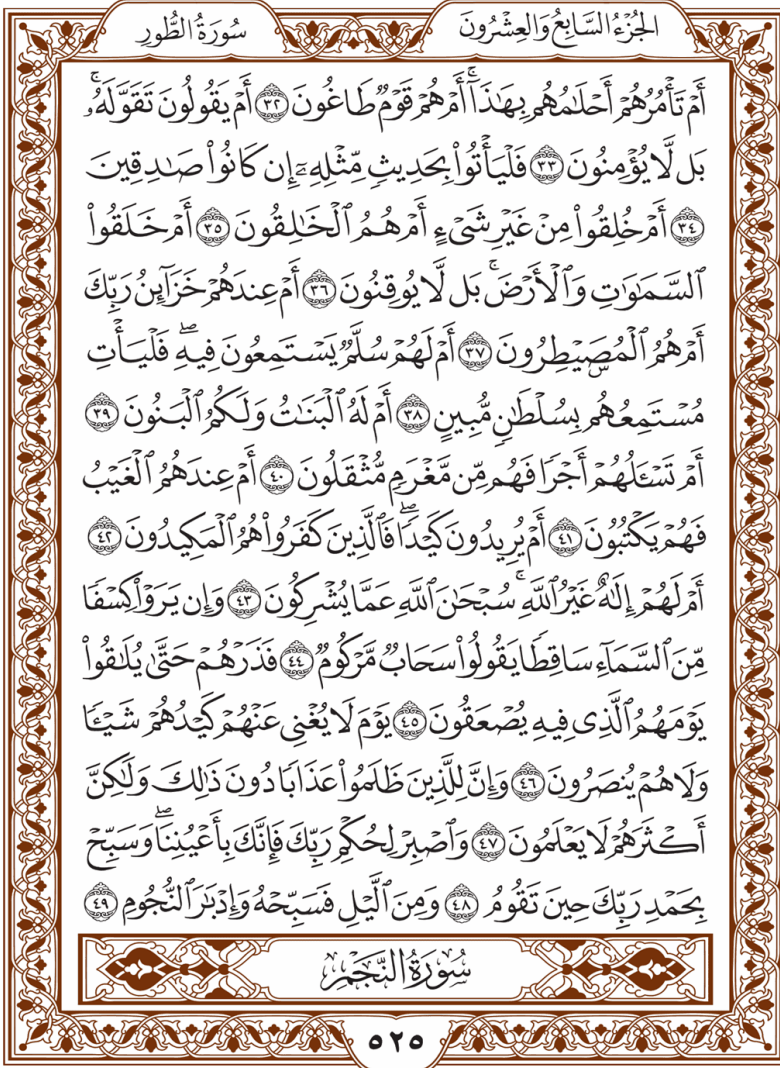 الجُزْءُ السَّابِعُ وَالعِشْرُونَ
سُورَةُ الطُّورِ
أَمْ تَأْمُرُهُمْ أَحْلَٰمُهُم بِهَٰذَآۚ أَمْ هُمْ قَوْمٌ طَاغُونَ ٣٢ أَمْ يَقُولُونَ تَقَوَّلَهُۥۚ
بَل لَّا يُؤْمِنُونَ ٣٣ فَلْيَأْتُواْ بِحَدِيثٍ مِّثْلِهِۦٓ إِن كَانُواْ صَٰدِقِينَ
٣٤ أَمْ خُلِقُواْ مِنْ غَيْرِ شَىْءٍ أَمْ هُمُ ٱلْخَٰلِقُونَ ٣٥ أَمْ خَلَقُواْ
ٱلسَّمَٰوَٰتِ وَٱلْأَرْضَۚ بَل لَّا يُوقِنُونَ ٣٦ أَمْ عِندَهُمْ خَزَآئِنُ رَبِّكَ
أَمْ هُمُ ٱلْمُصَۜيْطِرُونَ ٣٧ أَمْ لَهُمْ سُلَّمٌ يَسْتَمِعُونَ فِيهِۖ فَلْيَأْتِ
مُسْتَمِعُهُم بِسُلْطَٰنٍ مُّبِينٍ ٣٨ أَمْ لَهُ ٱلْبَنَٰتُ وَلَكُمُ ٱلْبَنُونَ ٣٩
أَمْ تَسْـَٔلُهُمْ أَجْرًا فَهُم مِّن مَّغْرَمٍ مُّثْقَلُونَ ٤٠ أَمْ عِندَهُمُ ٱلْغَيْبُ
فَهُمْ يَكْتُبُونَ ٤١ أَمْ يُرِيدُونَ كَيْدًاۖ فَٱلَّذِينَ كَفَرُواْ هُمُ ٱلْمَكِيدُونَ ٤٢
أَمْ لَهُمْ إِلَٰهٌ غَيْرُ ٱللَّهِۚ سُبْحَٰنَ ٱللَّهِ عَمَّا يُشْرِكُونَ ٤٣ وَإِن يَرَوْاْ كِسْفًا
مِّنَ ٱلسَّمَآءِ سَاقِطًا يَقُولُواْ سَحَابٌ مَّرْكُومٌ ٤٤ فَذَرْهُمْ حَتَّىٰ يُلَٰقُواْ
يَوْمَهُمُ ٱلَّذِى فِيهِ يُصْعَقُونَ ٤٥ يَوْمَ لَا يُغْنِى عَنْهُمْ كَيْدُهُمْ شَيْـًٔا
وَلَا هُمْ يُنصَرُونَ ٤٦ وَإِنَّ لِلَّذِينَ ظَلَمُواْ عَذَابًا دُونَ ذَٰلِكَ وَلَٰكِنَّ
أَكْثَرَهُمْ لَا يَعْلَمُونَ ٤٧ وَٱصْبِرْ لِحُكْمِ رَبِّكَ فَإِنَّكَ بِأَعْيُنِنَاۖ وَسَبِّحْ
بِحَمْدِ رَبِّكَ حِينَ تَقُومُ ٤٨ وَمِنَ ٱلَّيْلِ فَسَبِّحْهُ وَإِدْبَٰرَ ٱلنُّجُومِ ٤٩
سُورَةُ النَّجْمِ
٥٢٥